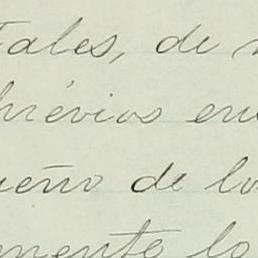 tales, de
révios en
ueño de lo
mente lo